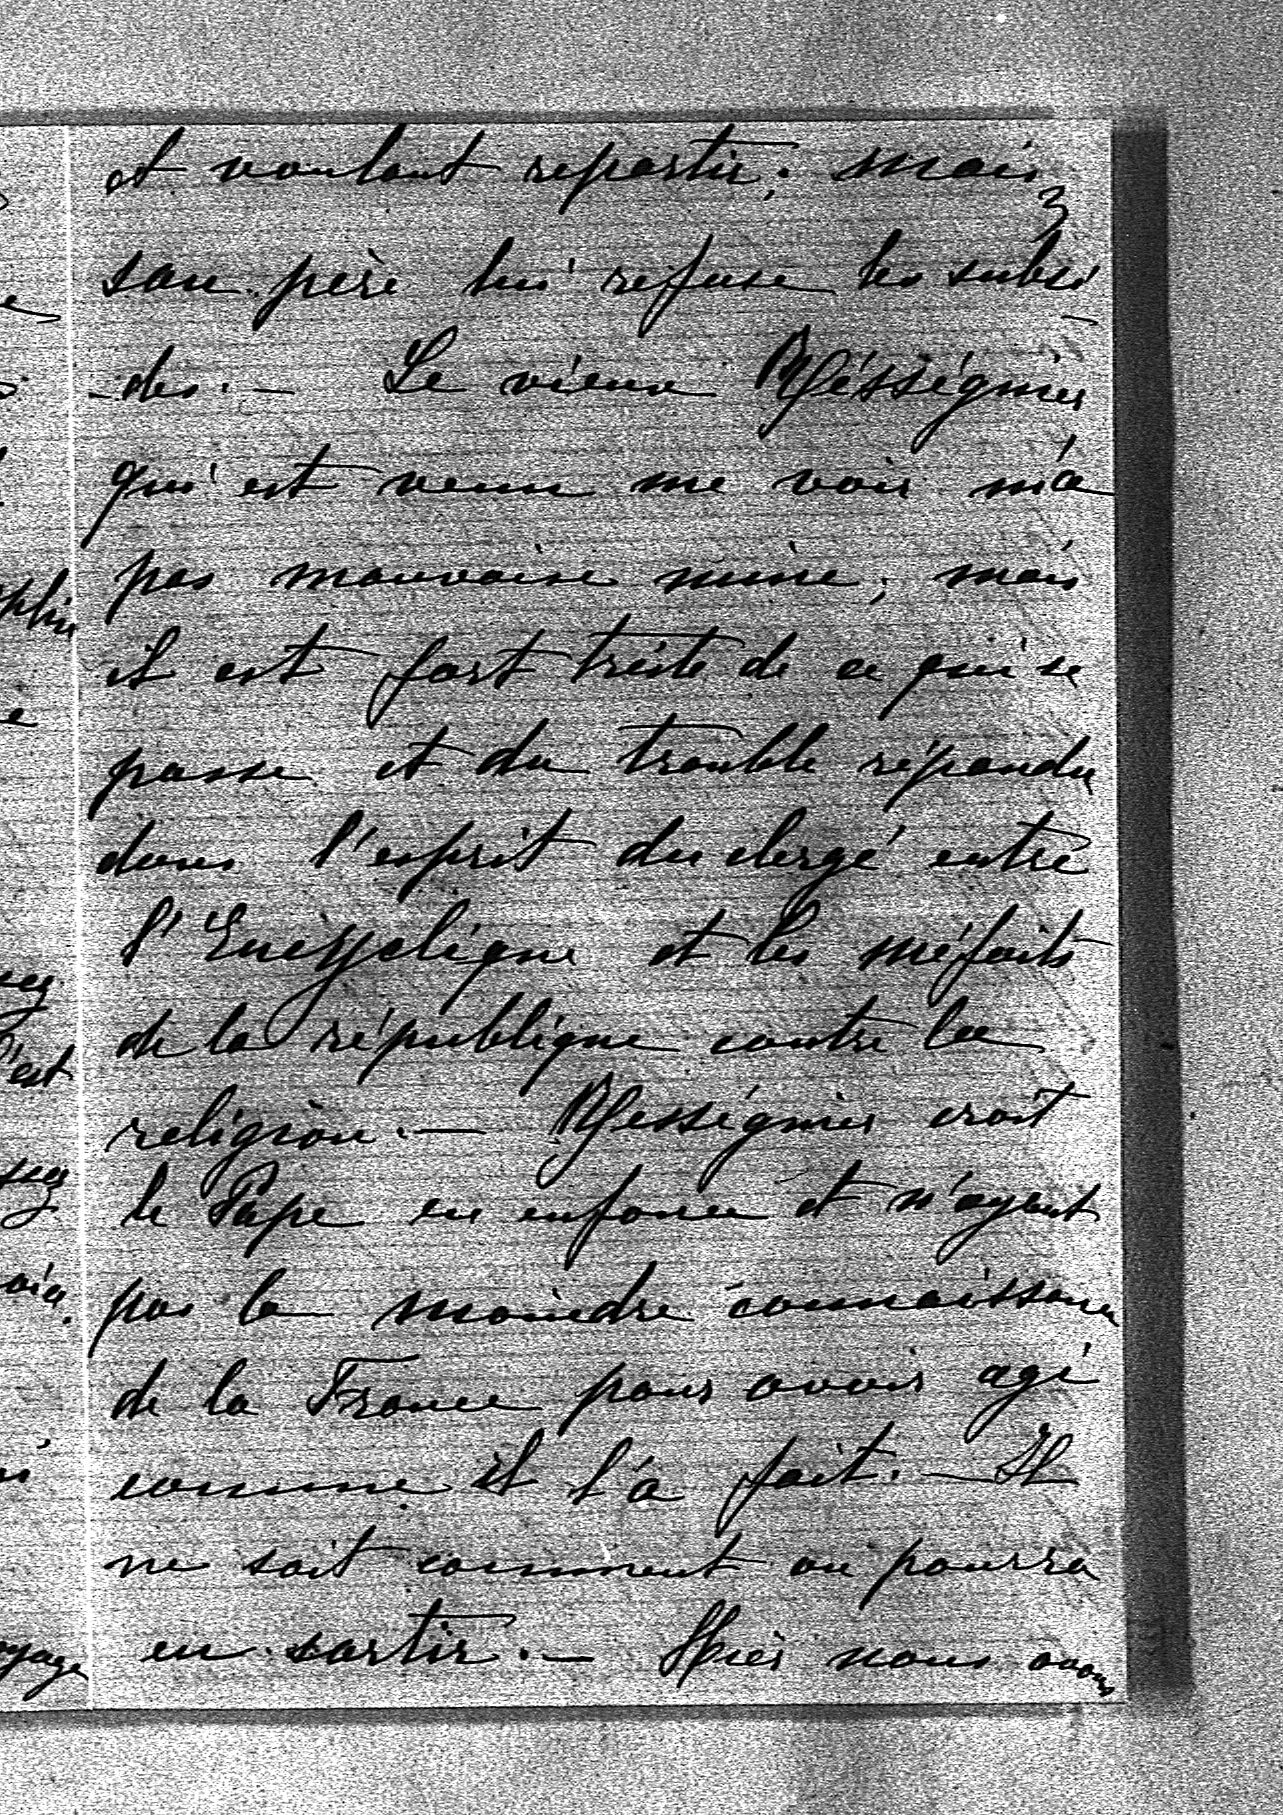 et voulant repartir; mais
son père lui refuse les subsi
-des. — Le vieux Rességuier
qui est venu me voir n'a
pas mauvaise mine; mais
il est fort triste de ce qui se
passe et du trouble répandu
dans l'esprit du clergé entre
l'Encyclique et les méfaits
de la république contre la
religion. — Rességuier croit
le Pape en enfance et n'ayant
pas la moindre connaissance
de la France pour avoir agi
comme il l'a fait. — Il
ne sait comment on pourra
en sortir. — Hier nous avons